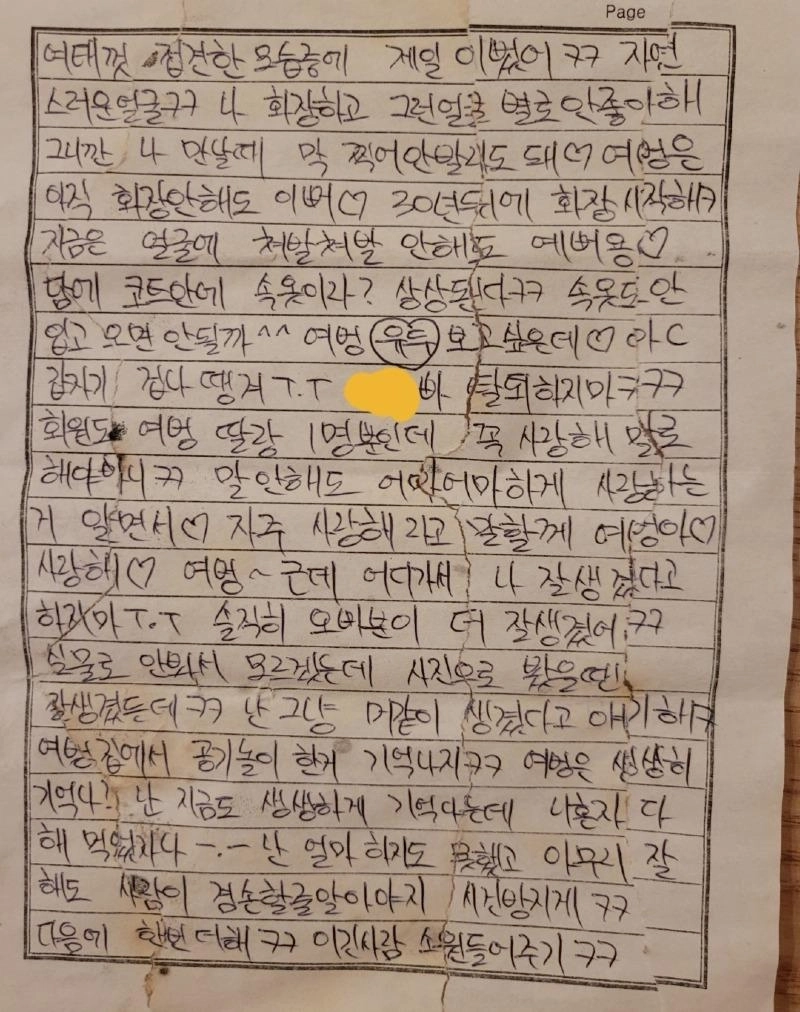 Page
여태껏 접견한 모습중에 제일 이뻤어 ㅋㅋ 자연
스러운얼굴ㅋㅋ 나 화장하고 그런얼굴 별로안좋아해
그니깐 나 만날때 막 찍어안발라도 돼♡ 여벙은
아직 화장안해도 이뻐♡ 30년뒤에 화장시작해ㅋ
지금은 얼굴에 쳐발쳐발 안해도 예뻐용♡
담에 코트안에 속옷이라? 상상된다ㅋㅋ 속옷도 안
입고 오면 안될까^^ 여벙 보고싶은데♡ 아
갑자기 겁나 땡겨 T.T 빠 탈퇴하지마ㅋㅋㅋ
회원도 여벙 딸랑 1명뿐인데 꼭 사랑해 말로
해야아니ㅋㅋ 말안해도 어마어마하게 사랑하는
거 알면서♡ 자주 사랑해 라고 말할께 여벙아♡
사랑해♡ 여벙~ 근데 어디가서 나 잘생겼다고
하지마 T.T 솔직히 오빠분이 더 잘생겼어 ㅋㅋ
실물로 안봐서 모르겠는데 사진으로 봤을땐
잘생겼든데ㅋㅋ 난 그냥 머같이 생겼다고 얘기해ㅋ
여벙집에서 공기놀이 한거 기억나지ㅋㅋ 여벙은 생생히
기억나? 난 지금도 생생하게 기억나는데 나혼자 다
해 먹었자나 -.- 난 얼마 하지도 못했고 아무리 잘
해도 사람이 겸손할줄알아야지 시건방지게 ㅋㅋ
다음에 한번더해 ㅋㅋ 이긴사람 소원들어주기ㅋㅋ